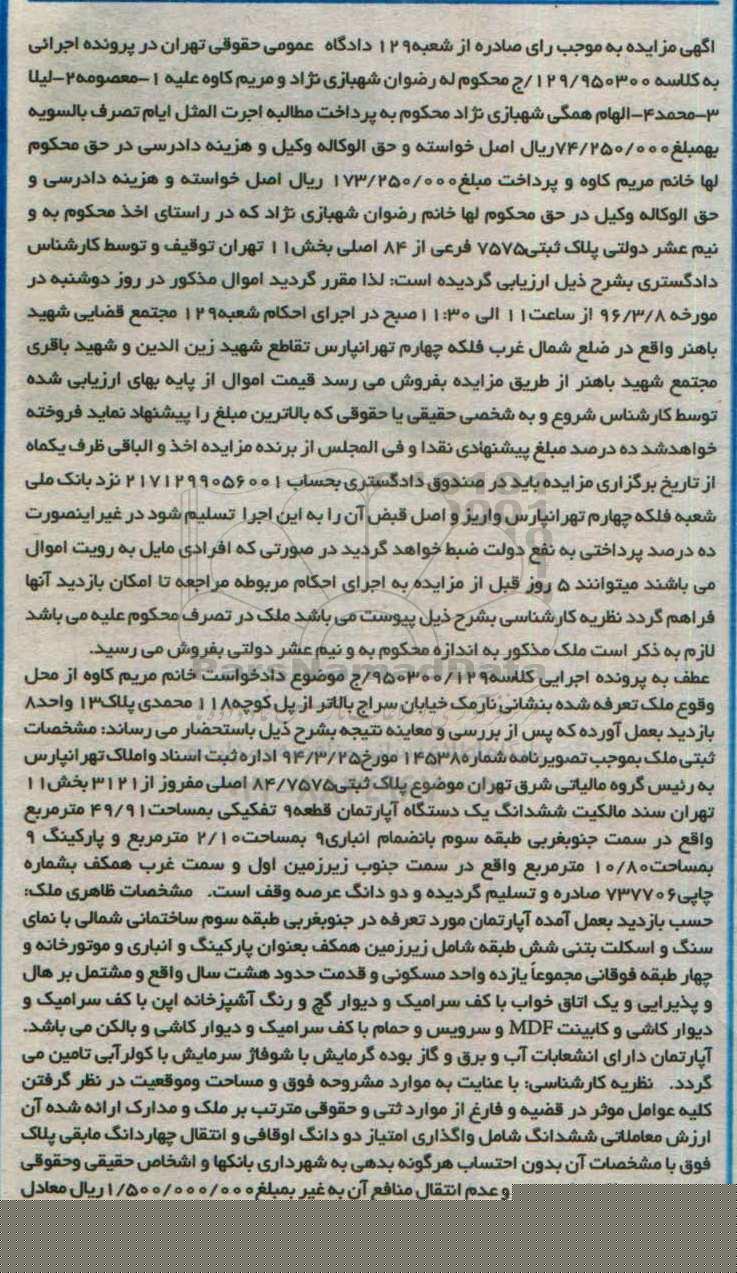 اگهی مزایده به موجب رای صادره از شعبه۱۲۹ دادگاه عمومی حقوقی تهران در پرونده اجرائی
به کلاسه ۱۲۹/۹۵۰۳۰۰/ج محکوم له رضوان شهبازی نژاد و مریم کاوه علیه ۱-معصومه۲-لیلا
۳-محمد۴-الهام همگی شهبازی نژاد محکوم به پرداخت مطالبه اجرت المثل ایام تصرف بالسویه
بهمبلغ۷۴/۲۵۰/۰۰۰ریال اصل خواسته و حق الوکاله وکیل و هزینه دادرسی در حق محکوم
لها خانم مریم کاوه و پرداخت مبلغ۱۷۳/۲۵۰/۰۰۰ ریال اصل خواسته و هزینه دادرسی و
حق الوکاله وکیل در حق محکوم لها خانم رضوان شهبازی نژاد که در راستای اخذ محکوم به و
نیم عشر دولتی پلاک ثبتی۷۵۷۵ فرعی از ۸۴ اصلی بخش۱۱ تهران توقیف و توسط کارشناس
دادگستری بشرح ذیل ارزیابی گردیده است: لذا مقرر گردید اموال مذکور در روز دوشنبه در
مورخه ۹۶/۳/۸ از ساعت۱۱ الی ۱۱:۳۰صبح در اجرای احکام شعبه۱۲۹ مجتمع قضایی شهید
باهنر واقع در ضلع شمال غرب فلکه چهارم تهرانپارس تقاطع شهید زین الدین و شهید باقری
مجتمع شهید باهنر از طریق مزایده بفروش می رسد قیمت اموال از پایه بهای ارزیابی شده
توسط کارشناس شروع و به شخصی حقیقی یا حقوقی که بالاترین مبلغ را پیشنهاد نماید فروخته
خواهدشد ده درصد مبلغ پیشنهادی نقدا و فی المجلس از برنده مزایده اخذ و الباقی ظرف یکماه
از تاریخ برگزاری مزایده باید در صندوق دادگستری بحساب ۲۱۷۱۲۹۹۰۵۶۰۰۱ نزد بانک ملی
شعبه فلکه چهارم تهرانپارس واریز و اصل قبض آن را به این اجرا تسلیم شود در غیر اینصورت
ده درصد پرداختی به نفع دولت ضبط خواهد گردید در صورتی که افرادی مایل به رویت اموال
می باشند میتوانند ۵ روز قبل از مزایده به اجرای احکام مربوطه مراجعه تا امکان بازدید آنها
فراهم گردد نظریه کارشناسی بشرح ذیل پیوست می باشد ملک در تصرف محکوم علیه می باشد
لازم به ذکر است ملک مذکور به اندازه محکوم به و نیم عشر دولتی بفروش می رسید.
عطف به پرونده اجرایی کلاسه۹۵۰۳۰۰/۱۲۹/ج موضوع دادخواست خانم مریم کاوه از محل
وقوع ملک تعرفه شده بنشانی نارمک خیابان سراج بالاتر از پل کوچه۱۱۸ محمدی پلاک۱۳ واحد۸
بازدید بعمل آورده که پس از بررسی و معاینه نتیجه بشرح ذیل باستحضار می رساند: مشخصات
ثبتی ملک بموجب تصویرنامه شماره۱۴۵۳۸ مورخ۹۴/۳/۲۵ اداره ثبت اسناد واملاک تهرانپارس
به رئیس گروه مالیاتی شرق تهران موضوع پلاک ثبتی۸۴/۷۵۷۵ اصلی مفروز از۳۱۲۱ بخش۱۱
تهران سند مالکیت ششدانگ یک دستگاه آپارتمان قطعه۹ تفکیکی بمساحت۴۹/۹۱ مترمربع
واقع در سمت جنوبغربی طبقه سوم بانضمام انباری۹ بمساحت۲/۱۰ مترمربع و پارکینگ ۹
بمساحت۱۰/۸۰ مترمربع واقع در سمت جنوب زیرزمین اول و سمت غرب همکف بشماره
چاپی۷۳۷۷۰۶ صادره و تسلیم گردیده و دو دانگ عرصه وقف است. مشخصات ظاهری ملک:
حسب بازدید بعمل آمده آپارتمان مورد تعرفه در جنوبغربی طبقه سوم ساختمانی شمالی با نمای
سنگ و اسکلت بتنی شش طبقه شامل زیرزمین همکف بعنوان پارکینگ و انباری و موتورخانه و
چهار طبقه فوقانی مجموعاً یازده واحد مسکونی و قدمت حدود هشت سال واقع و مشتمل بر هال
و پذیرایی و یک اتاق خواب با کف سرامیک و دیوار گچ و رنگ آشپزخانه اپن با کف سرامیک و
دیوار کاشی و کابینت MDF و سرویس و حمام با کف سرامیک و دیوار کاشی و بالکن می باشد.
آپارتمان دارای انشعابات آب و برق و گاز بوده گرمایش با شوفاژ سرمایش با کولرآبی تامین می
گردد. نظریه کارشناسی: با عنایت به موارد مشروحه فوق و مساحت وموقعیت در نظر گرفتن
کلیه عوامل موثر در قضیه و فارغ از موارد ثتی و حقوقی مترتب بر ملک و مدارک ارائه شده آن
ارزش معاملاتی ششدانگ شامل واگذاری امتیاز دو دانگ اوقافی و انتقال چهاردانگ مابقی پلاک
فوق با مشخصات آن بدون احتساب هرگونه بدهی به شهرداری بانکها و اشخاص حقیقی وحقوقی
و عدم انتقال منافع آن به غیر بمبلغ۱/۵۰۰/۰۰۰/۰۰۰ریال معادل
ParsNamadData